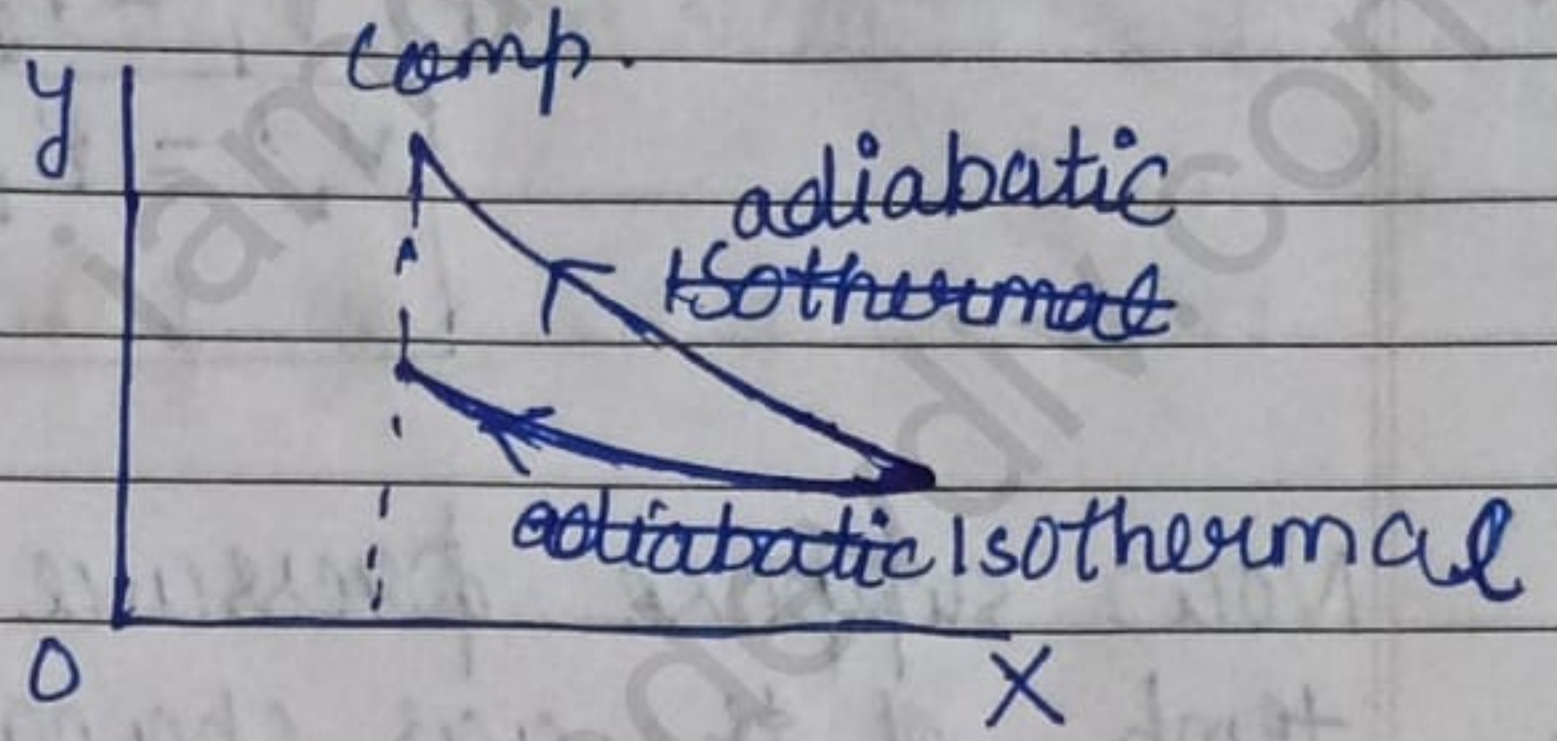 comp.
y
adiabatic
Isothermal
adiabatic Isothermal
O
X